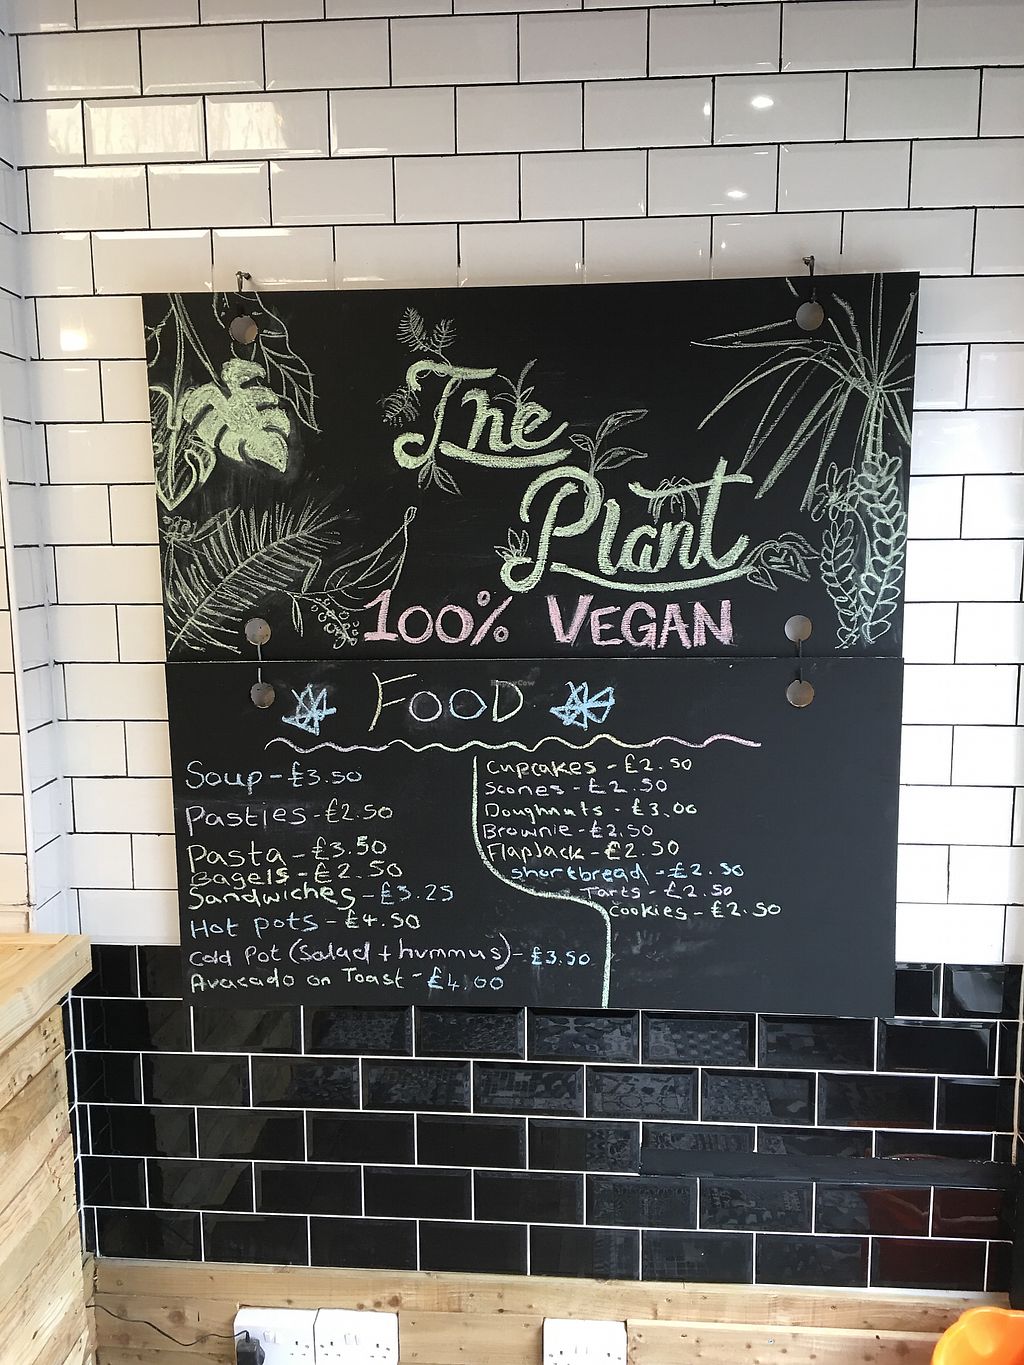 The
Plant
100% VEGAN
FOOD
Soup - £3.50
Pasties - £2.50
Pasta - £3.50
Bagels - £2.50
Sandwiches - £3.25
Hot pots - £4.50
Cold Pot (Salad + hummus) - £3.50
Avacado on Toast - £4.00
Cupcakes - £2.50
Scones - £2.50
Doughnuts - £3.00
Brownie - £2.50
FlapJack - £2.50
Shortbread - £2.50
Tarts - £2.50
Cookies - £2.50